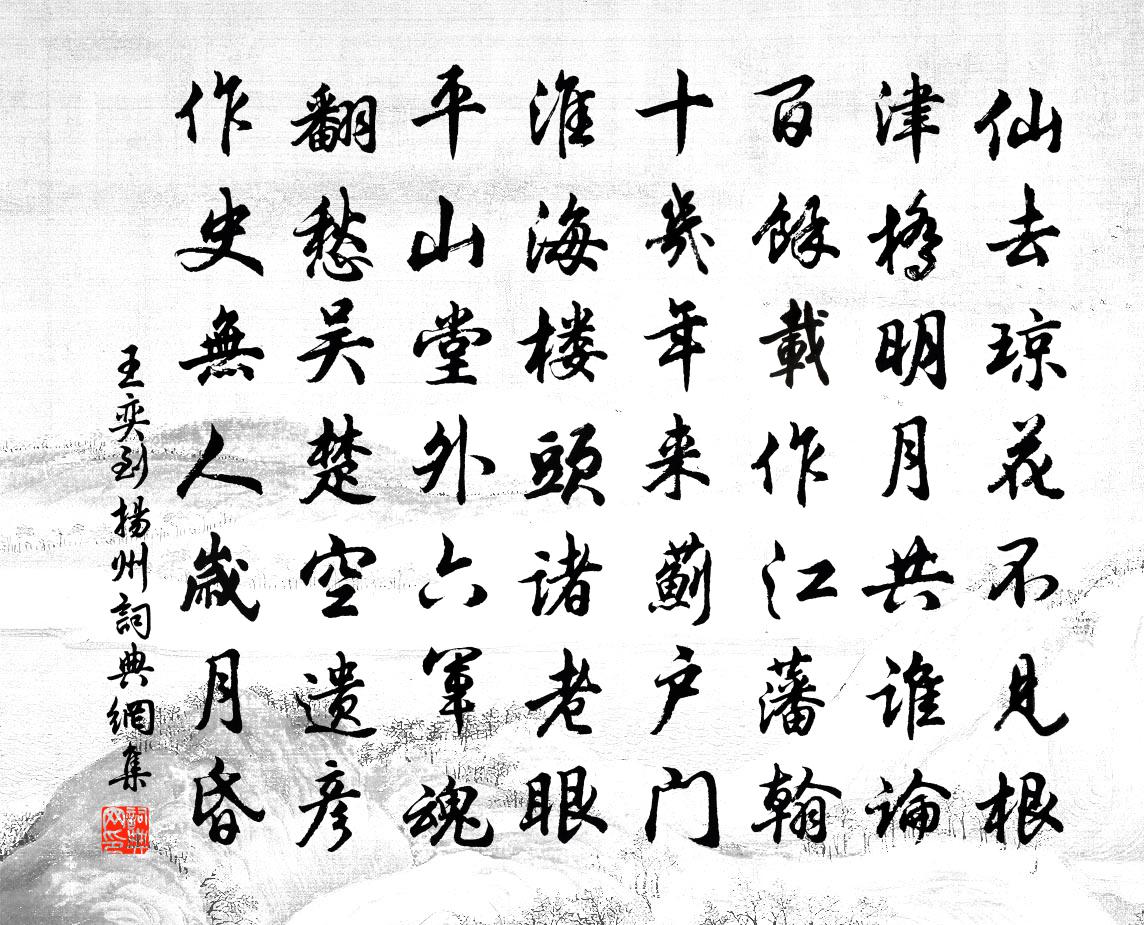 仙去琼花不见根
津桥明月共谁论
百馀載作江藩翰
十几年来蓟户门
淮海楼頭诸老眼
平山堂外六军魂
翻愁吴楚空遗彦
作史無人歲月昏
王奕到揚州詞典網集